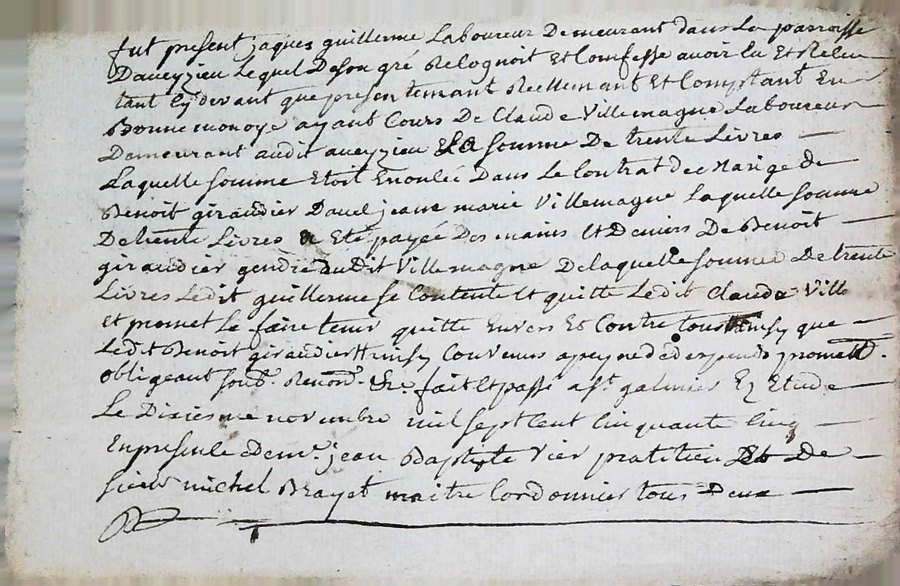 fut present jaques guillerme Laboureur Demeurant dans La parroisse
Daveyzieu Lequel De son gré Recognoit Et Comfesse avoir Eu Et Receu
tant cy devant que presentemant Reellemant Et Comptant En
Bonne monoye ayant Cours De Claude Villemagne Laboureur
Demeurant audit aveyzieu La somme De trente Livres
Laquelle somme Etoit Enoncée Dans Le Contrat de Marige de
Benoit giraudier Davec jeanne marie Villemagne Laquelle somme
De trente Livres a Eté payée Des mains Et Deniers De Benoit
giraudier gendre dudit Villemagne De laquelle somme De trente
Livres Ledit guillerme se Contente Et quitte Ledit Claude Ville
Et promet Le faire tenir quitte Envers Et Contre tous Ainsy que
Ledit Benoit giraudier Ainsy Convenus a peyne de despends promett.
obligeant soub. Renon. &c. fait Et passé a st. galmier Ez Etude
Le Dixiesme novembre mil sept Cent Cinquante Cinq
En presence de me. jean Baptiste Vier praticien De
sieur michel Brayet maitre Cordonnier tous Deux